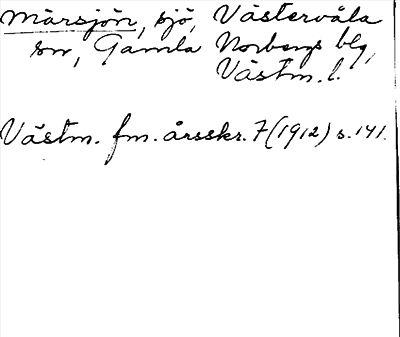 Märsjön, sjö, Västervåla
sn, Gamla Norbergs blg,
Västm. l.
Västm. fm. årsskr. 7 (1912) s. 141.